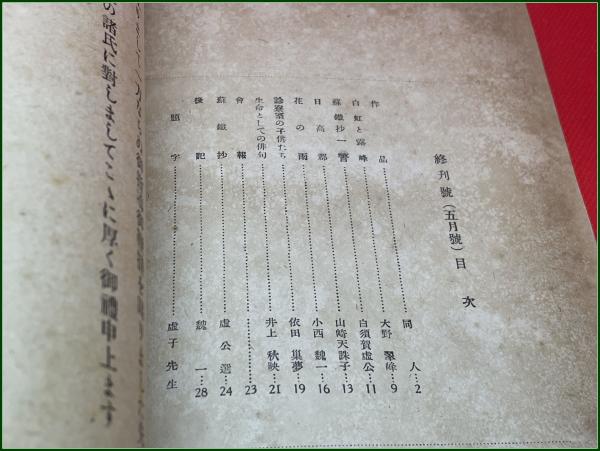 終刊號(五月號)目次
作品……同人…2
白虹と露峰……大野翠峰…9
蘇鐵抄一瞥……白須賀虚公…11
日高郡……山崎天誅子…13
花の雨……小西魏一…16
診察室の子供たち……依田巣夢…19
生命としての俳句……井上秋映…21
會報……23
蘇鐵抄……虚公選…24
後記……魏一…28
題字……虚子先生
の諸氏に對しましてこゝに厚く御禮申上